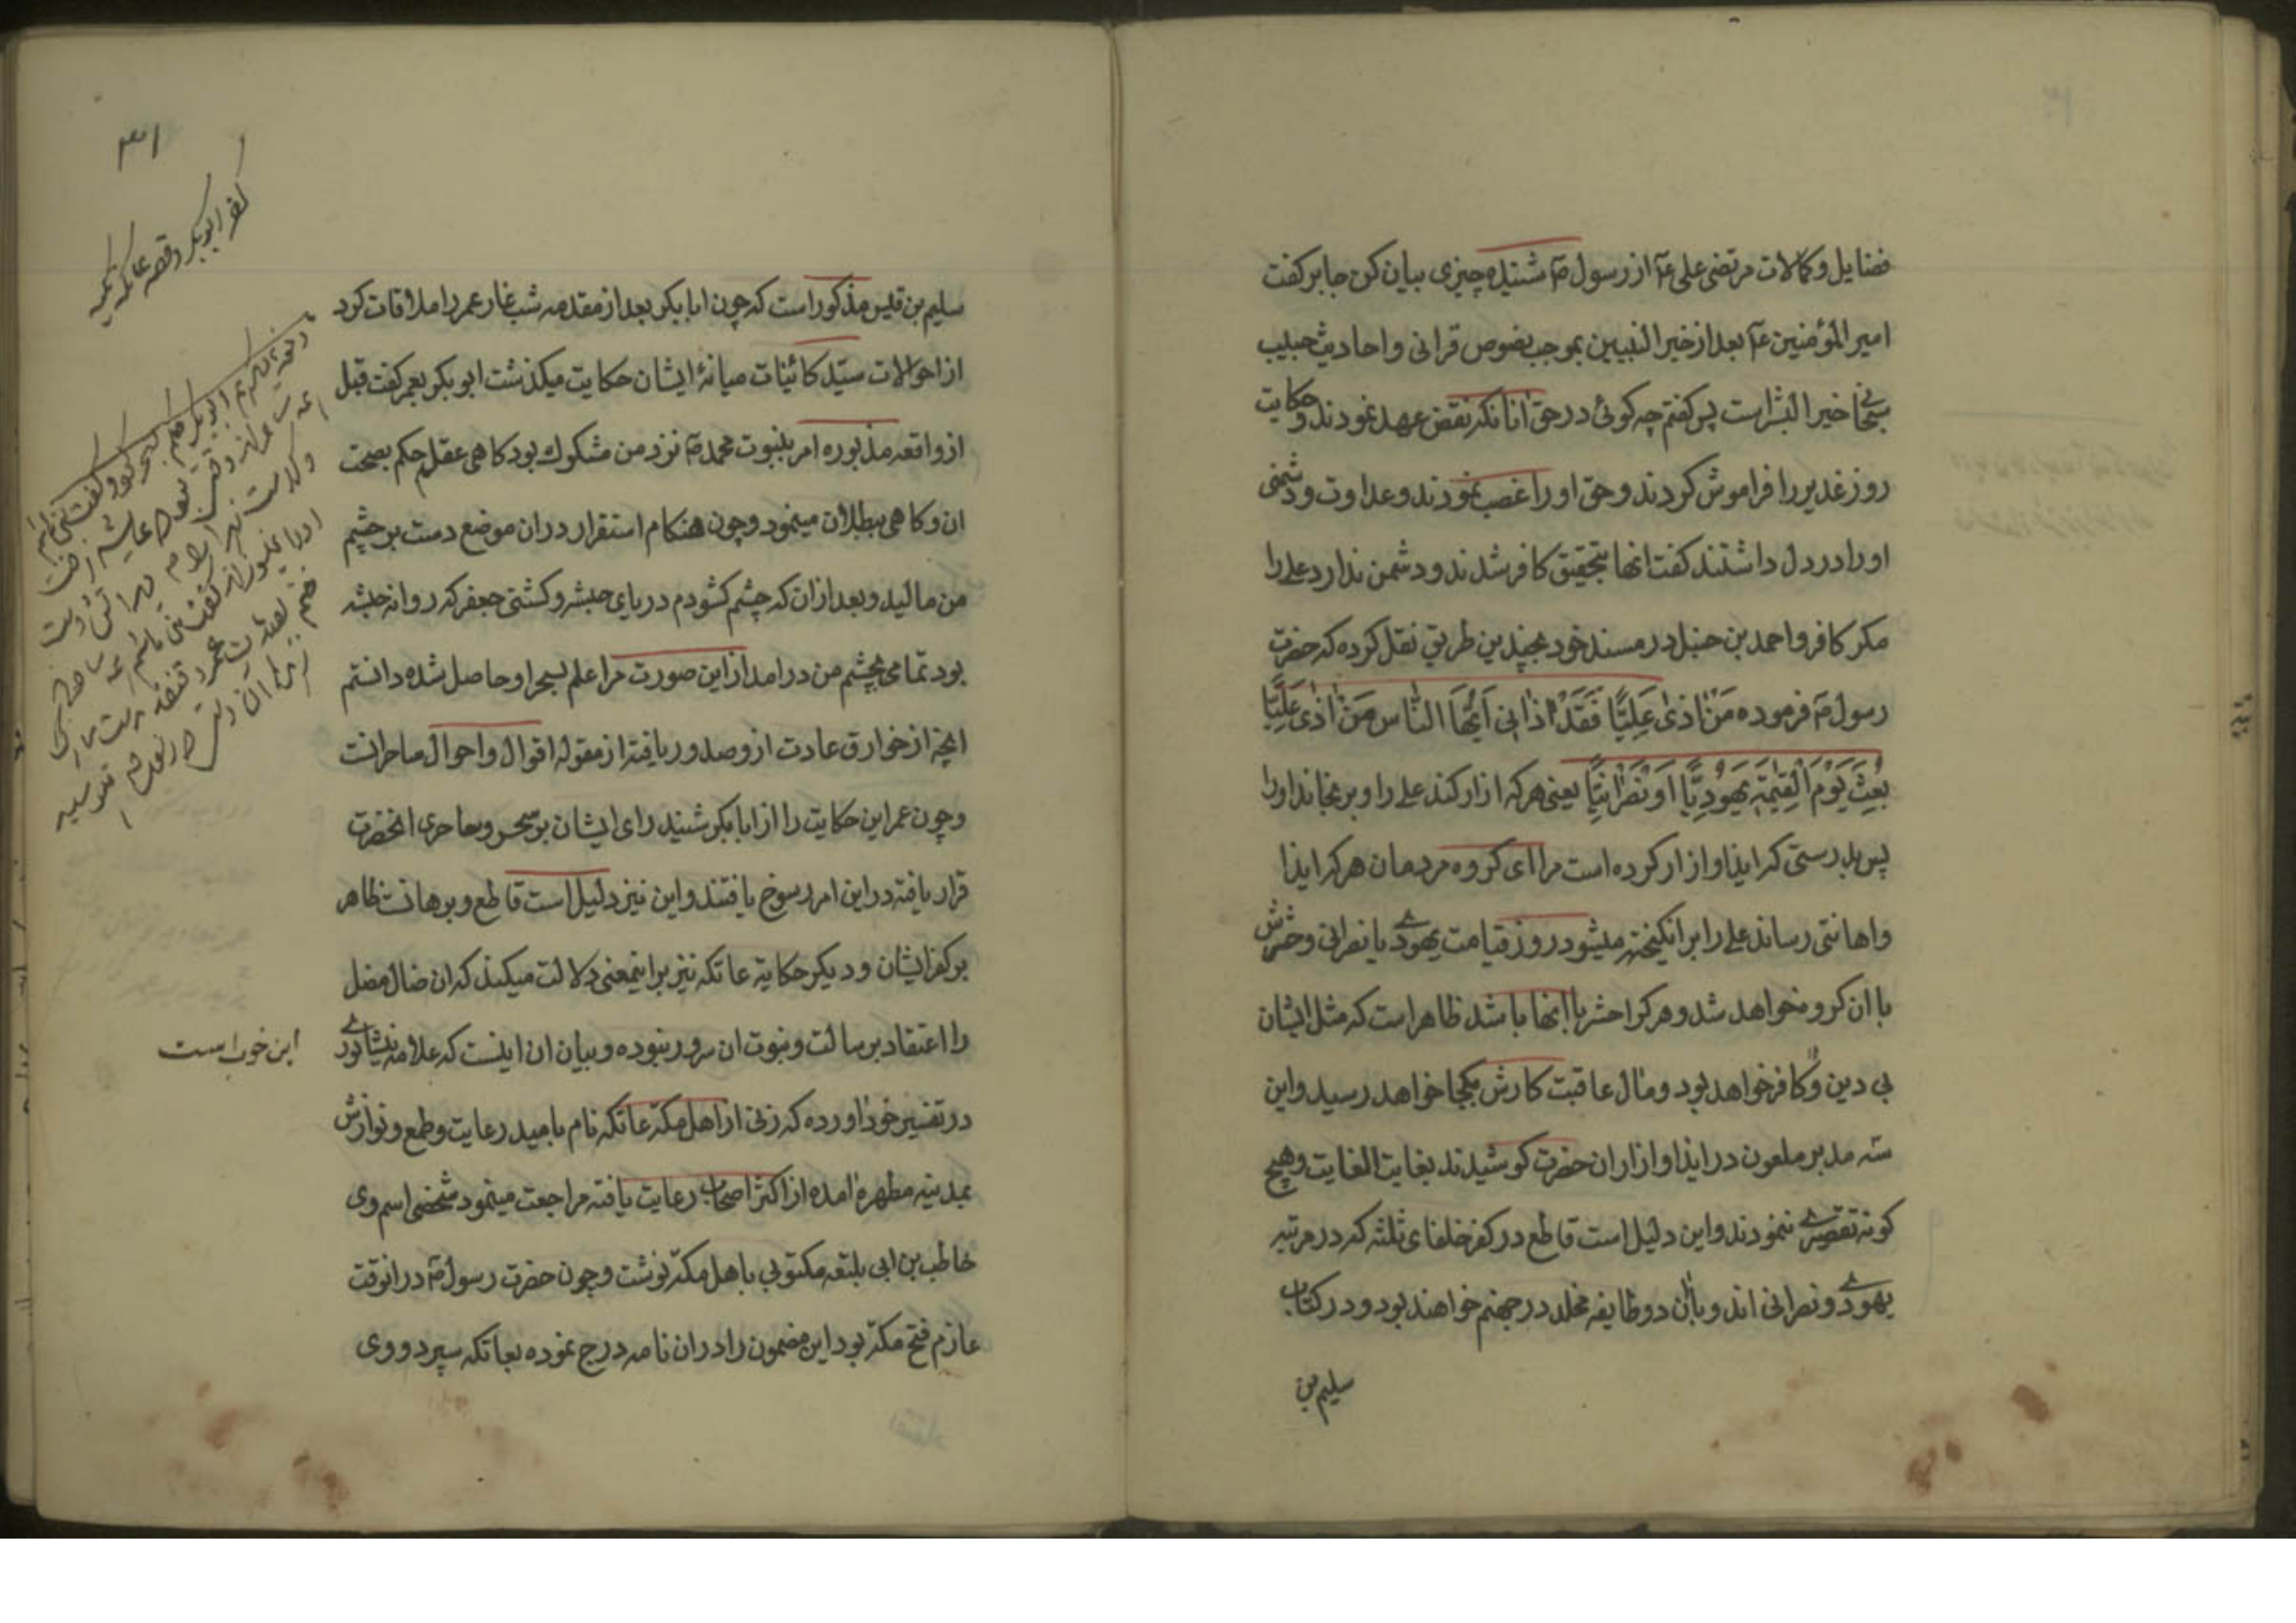 فضایل و کمالات مرتضی علی عم از رسول ص شنیده چیزی بیان کن جابر کفت
امیر المؤمنین عم بعد از خیر النبیین بموجب نصوص قرانی و احادیث حبیب
سبحانی خیر البشر است پس کفتم چه کوئی در حق انانکه نقض عهد نمودند و حکایت
روز غدیر را فراموش کردند و حق او را غصب نمودند و عداوت و دشمنی
او را در دل داشتند کفت انها بتحقیق کافر شدند و دشمن ندارد علی را
مکر کافر و احمد بن حنبل در مسند خود بچندین طریق نقل کرده که حضرت
رسول ص فرموده مَنْ اذی عَلِیًّا فَقَدْ اذانی اَیُّهَا النّاس مَنْ اَذی عَلِیًّا
بُعِثَ یَوْمَ الْقِیٰمَةِ یَهُودِیًّا اَوْ نَصْرانِیًّا یعنی هرکه ازار کند علی را و برنجاند او را
پس بدرستی که ایذا و ازار کرده است مرا ای کروه مردمان هرکه ایذا
و اهانتی رساند علی را برانکیخته میشود روز قیامت یهودی یا نصرانی و حشرش
با ان کروه خواهد شد و هرکرا حشر با انها باشد ظاهر است که مثل ایشان
بی دین و کافر خواهد بود و مال عاقبت کارش بکجا خواهد رسید و این
سه مدبر ملعون در ایذا و ازار ان حضرت کوشیدند بغایت الغایت و هیچ
کونه تقصیری ننمودند و این دلیل است قاطع در کفر خلفای ثلثه که در مرتبه
یهودی و نصرانی اند و با ان دو طایفه مخلد در جهنم خواهند بود و در کتاب
سلیم بن
۳۱
کفر ابوبکر و قصه عاتکه
سلیم بن قیس مذکور است که چون ابا بکر بعد از مقدمه شب غار عمر را ملاقات کرد
از احوالات سیّد کائینات میانهٔ ایشان حکایت میکذشت ابو بکر بعمر کفت قبل
از واقعه مذبوره امر بنبوت محمد ص نزد من مشکوک بود کاهی عقلم حکم بصحت
ان و کاهی ببطلان مینمود و چون هنکام استقرار دران موضع دست بر چشم
من مالید و بعد ازان که چشم کشودم دریای حبشه و کشتی جعفر که روانه حبشه
بود تمامی بچشم من در امد از این صورت مرا علم بسحر او حاصل شده دانستم
انچه از خوارق عادت از و صدور یافته از مقوله اقوال و احوال ساحرانست
و چون عمر این حکایت را از ابا بکر شنید رای ایشان بر سحر و ساحری انحضرت
قرار یافته در این امر رسوخ یافتند و این نیز دلیل است قاطع و برهانست ظاهر
بر کفر ایشان و دیکر حکایة عاتکه نیز بر اینمعنی دلالت میکند که ان ضال مضل
را اعتقاد برسالت و نبوت ان سرور نبوده و بیان ان اینست که علامه نیشابوری
در تفسیر خود اورده که زنی از اهل مکه عاتکه نام بامید رعایت و طمع و نوازش
بمدینه مطهره امده از اکثر اصحاب رعایت یافته مراجعت مینمود شخصی اسم وی
خاطب بن ابی بلتعه مکتوبی باهل مکه نوشت و چون حضرت رسول ص درانوقت
عازم فتح مکه بود این مضمون را دران نامه درج نموده بعاتکه سپرد و وی
این خوب است